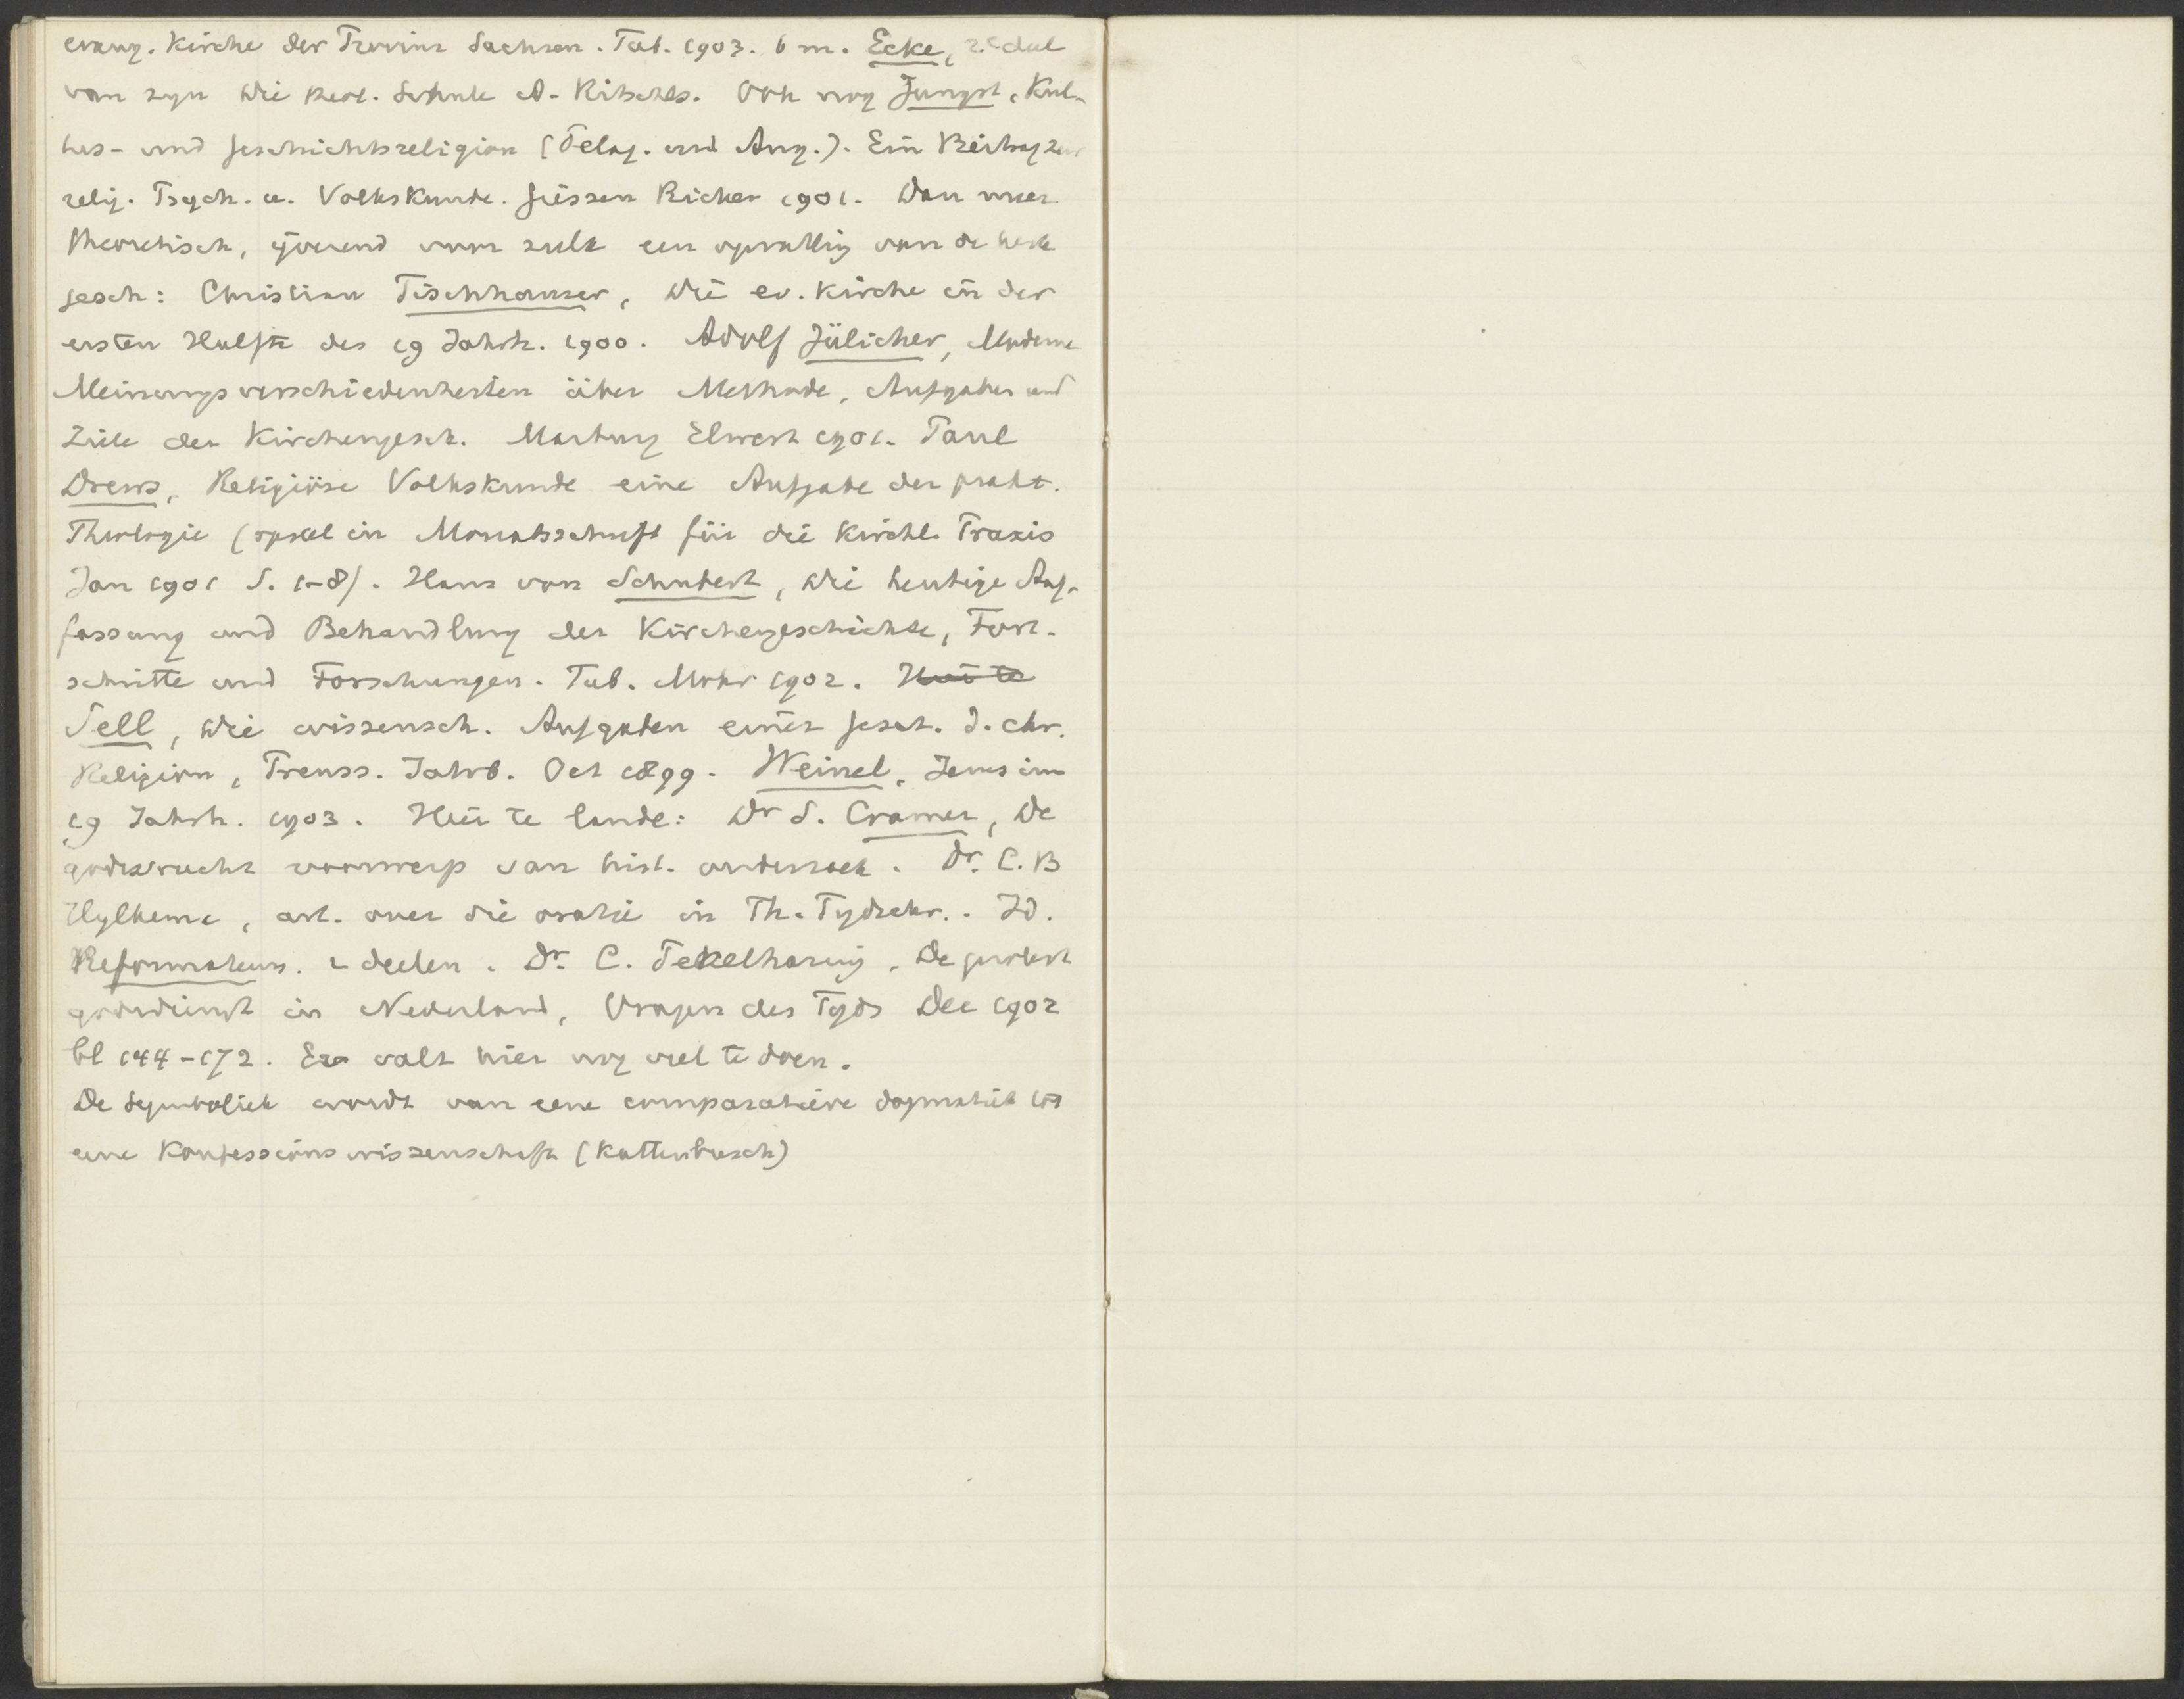 evang. Kirche der Provinz Sachsen. Tüb. 1903. 6 m. Ecke, 2e deel
van zyn Die theol. Schule A. Ritschls. Ook nog Jüngst, Kul-
tus- und Geschichtsreligion (Pelag. und Aug.). Ein Beitrag zur
relig. Psych. u. Volkskunde. Giessen Ricker 1901. Dan meer
theoretisch, yverend voor zulk een opvatting van de kerk
gesch: Christian Tischhauser, Die ev. Kirche in der
ersten Hälfte des 19 Jahrh. 1900. Adolf Jülicher, Moderne
Meinungsverschiedenheiten über Methode, Aufgaben und
Ziele der Kirchengesch. Marburg Elwert 1901. Paul
Drews, Religiöse Volkskunde eine Aufgabe der prakt.
Theologie (opstel in Monatsschrift für die Kirchl. Praxis
Jan 1901 S. 1-8). Hans von Schubert, Die heutige Auf-
fassung und Behandlung der Kirchengeschichte, Fort-
schritte und Forschungen. Tüb. Mohr 1902. Hier te
Sell, Die wissensch. Aufgaben einer Gesch. d. chr.
Religion, Preuss. Jahrb. Oct 1899. Weinel, Jesus im
19 Jahrh. 1903. Hier te lande: Dr S. Cramer, De
godsvrucht voorwerp van hist. onderzoek. Dr. C. B
Hylkema, art. over die oratie in Th. Tydschr.. Id.
Reformateurs. 2 deelen. Dr. C. Pekelharing, De protest
godsdienst in Nederland, Vragen des Tyds Dec 1902
bl 144-172. Er valt hier nog veel te doen.
De Symboliek wordt van eene comparatieve dogmatiek tot
eene Konfessionswissenschaft (Kattenbusch)